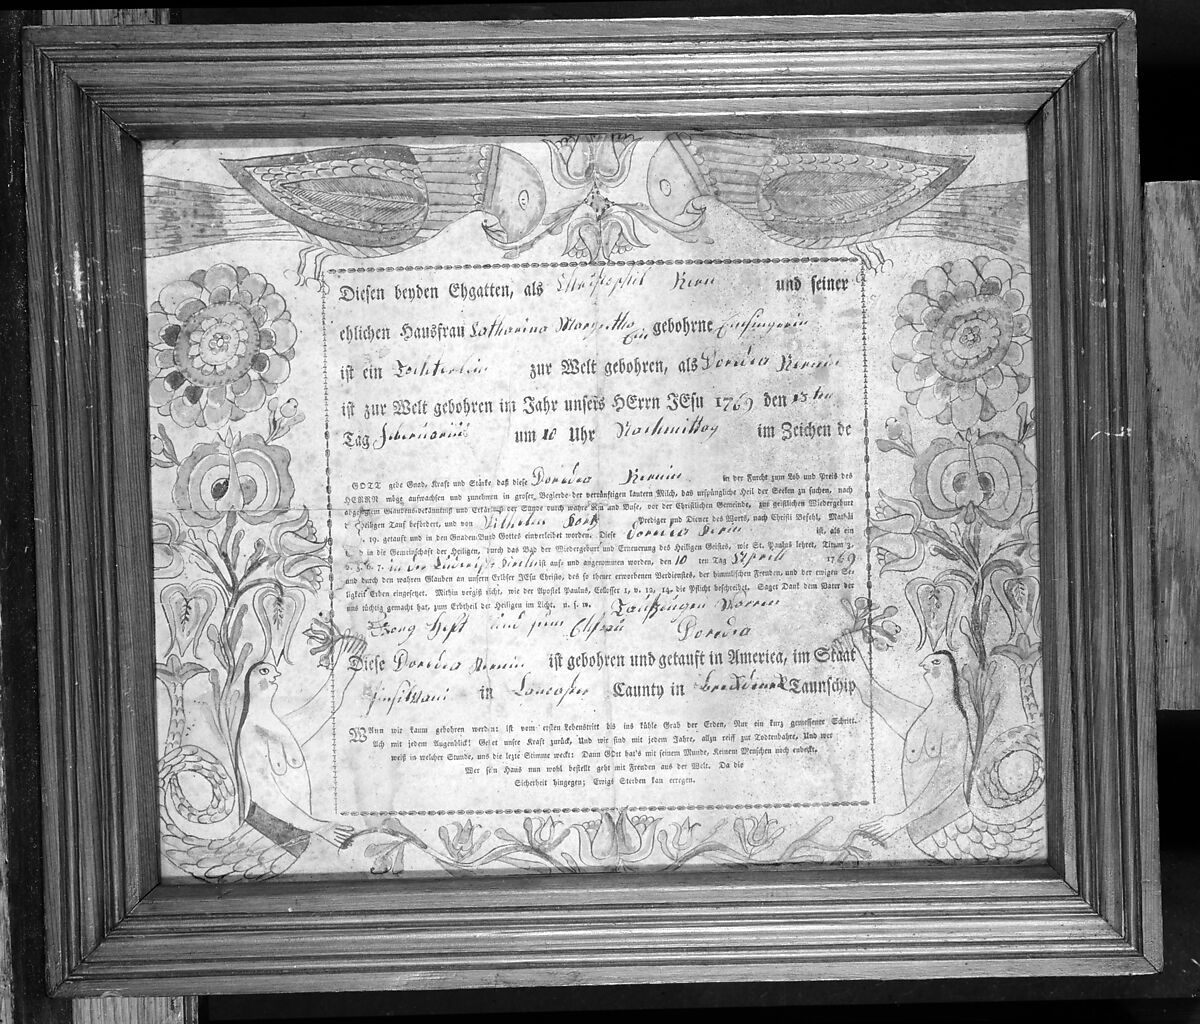 Diesen beyden Ehgatten, als Christophel Kern und seiner
ehlichen Hausfrau Catharina Margretha Ein gebohrne
ist ein Tochterlein zur Welt gebohren, als Doredea Kernin
ist zur Welt gebohren im Jahr unsers HErrn JEsu 1769 den 15ten
Tag Februarius um 10 Uhr Nachmittag im Zeichen de
GOTT gede Gnad, Kraft und Stärke, daß diese Doredea Kernin in der Furcht zum Lob und Preis des
HERRN möge aufwachsen und zunehmen in groser Begierde der vernünftigen lautern Milch, das ursprüngliche Heil der Seelen zu suchen, nach
abgelegtem Glaubensbekäntniß und Erklärung der Sünde durch wahre Reu und Buse, vor der Christlichen Gemeinde, zur geistlichen Wiedergeburt
d heiligen Tauf befördert, und von Wilhelm Prediger und Diener des Worts, nach Christi Befehl, Mathäi
19. getauft und in den Gnaden-Bund Gottes einverleibet worden. Diese Doredea Kernin ist, als ein
d in die Gemeinschaft der Heiligen, durch das Bad der Wiedergeburt und Erneuerung des Heiligen Geistes, wie St. Paulus lehret, Titum 3.
v. 5. 6. 7. in der ist auf- und angenommen worden, den 10 ten Tag Aprill 1769
und durch den wahren Glauben an unsern Erlöser JEsu Christo, des so theuer erworbenen Verdienstes, der himmlischen Freuden, und der ewigen Se-
ligkeit Erben eingesetzet. Mithin vergiß nicht, wie der Apostel Paulus, Colosser 1, v. 12, 14. die Pflicht beschreibet. Saget Dank dem Vater der
uns tüchtig gemacht hat, zum Erbtheil der Heiligen im Licht. u. s. w. Taufzeugen Waren
Georg Hest und seine Ehfrau Doredea
Diese Doredea Kernin ist gebohren und getauft in America, im Staat
in Lancaster Caunty in Taunschip
WAnn wir kaum gebohren werden: ist vom ersten Lebenstritt bis ins kühle Grab der Erden, Nur ein kurz gemessener Schritt.
Ach mit jedem Augenblick! Gehet unsre Kraft zurück, Und wir sind mit jedem Jahre, allzu reiff zur Todtenbahre, Und wer
weiß in welcher Stunde, uns die lezte Stimme weckt: Dann GOtt hat's mit seinem Munde, Keinem Menschen noch endeckt.
Wer sein Haus nun wohl bestellt geht mit Freuden aus der Welt. Da die
Sicherheit hingegen; Ewigs Sterben kan erregen.